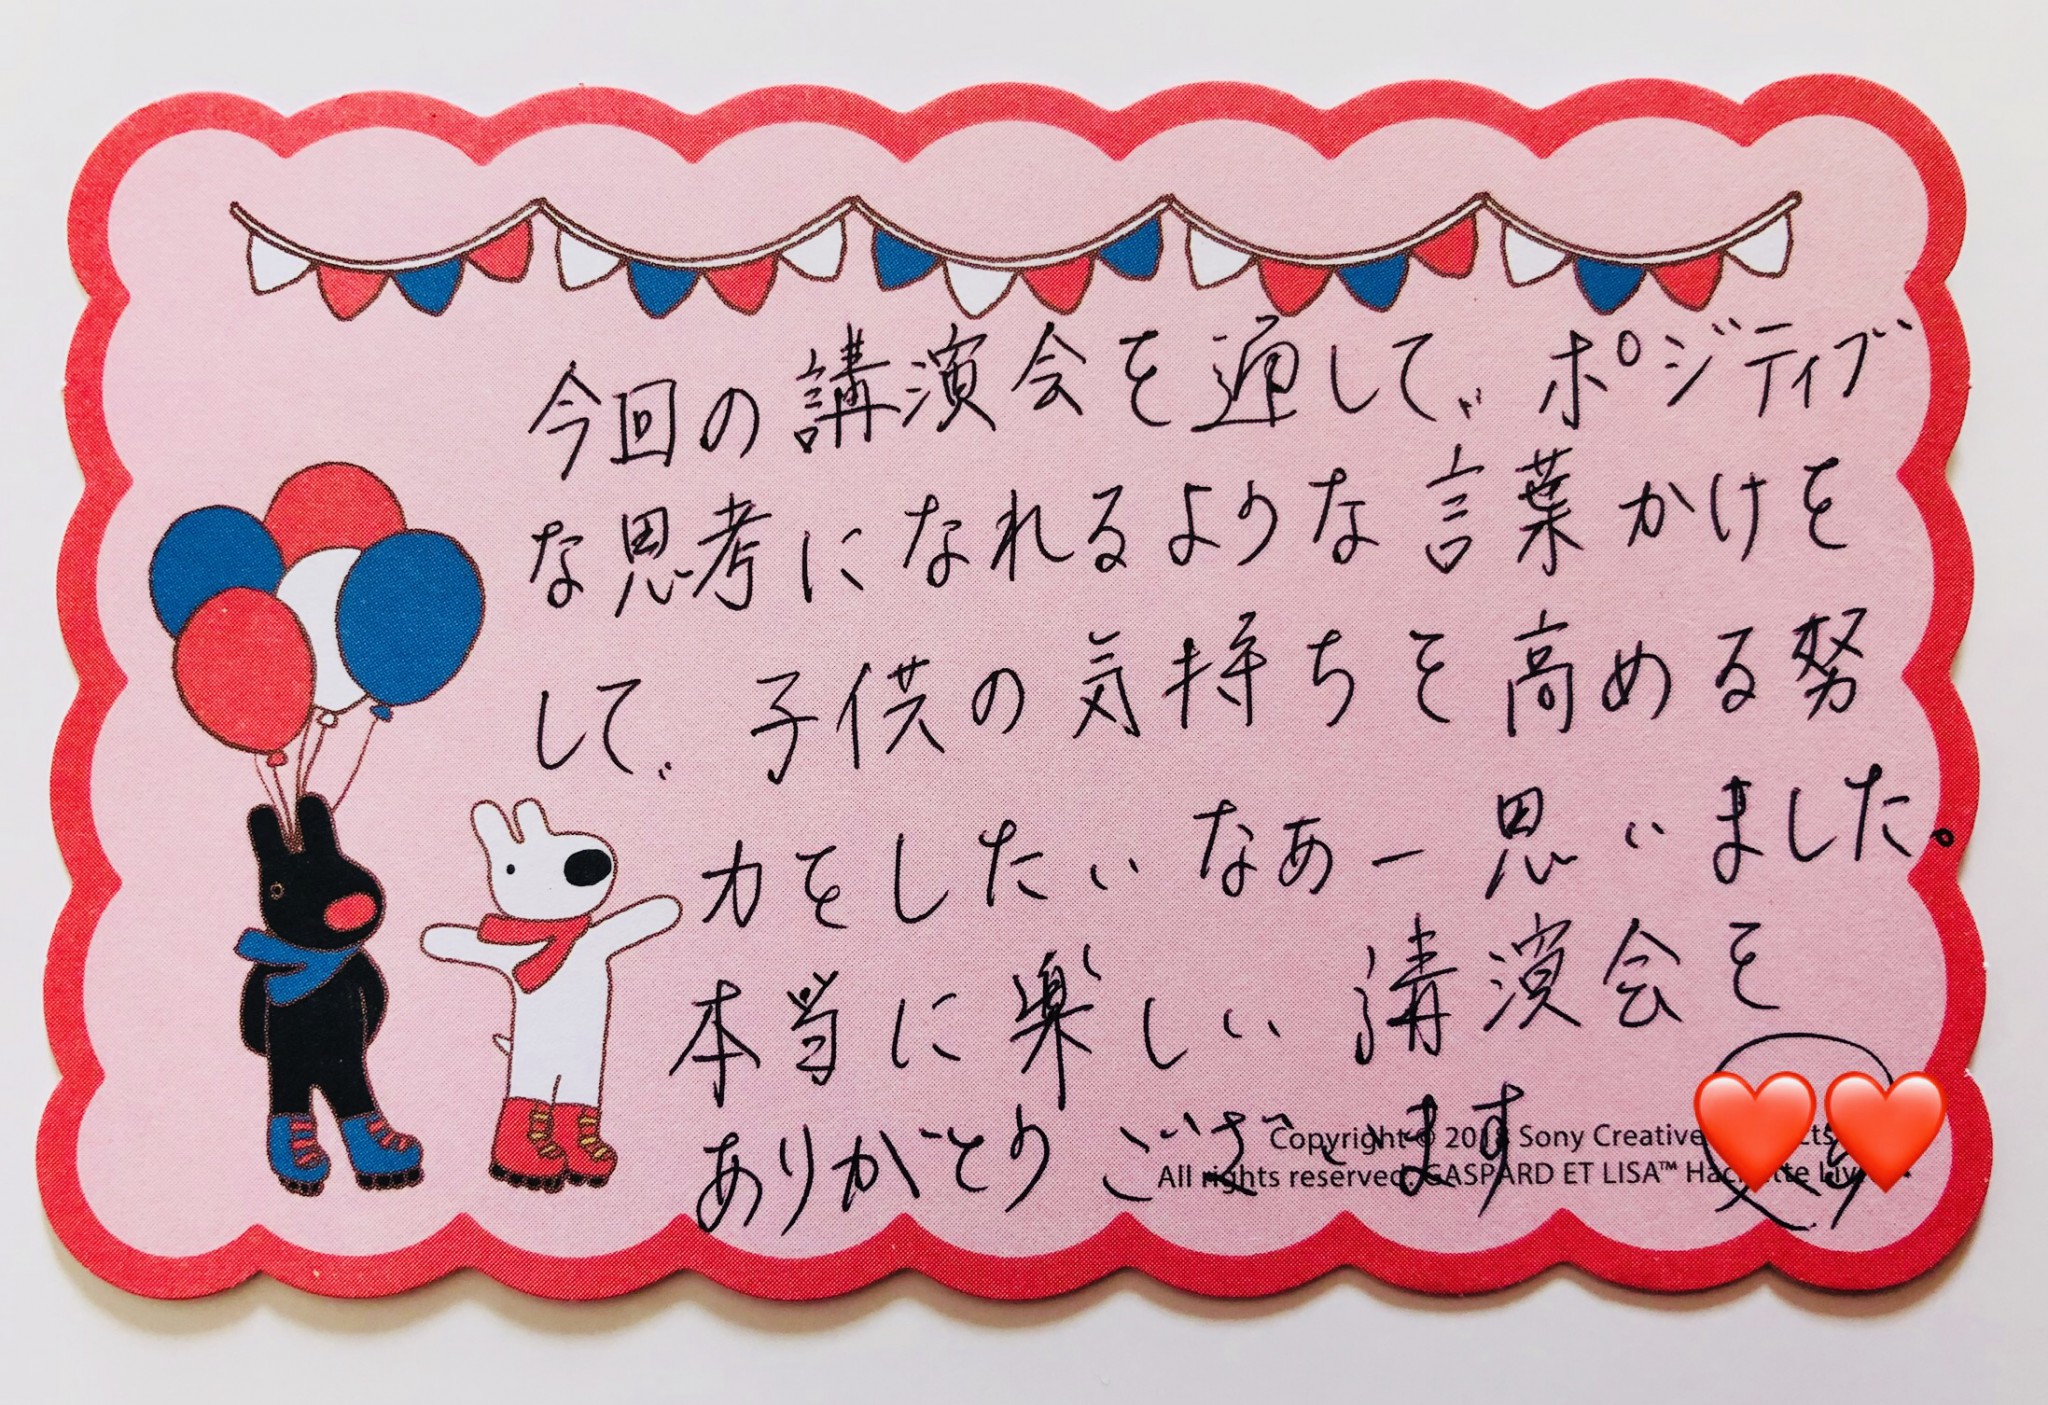 今回の講演会を通して、ポジティブ
な思考になれるような言葉かけを
して、子供の気持ちを高める努
力をしたいなあー思いました。
本当に楽しい講演会を
ありがとうございます
Copyright © 2018 Sony Creative
All rights reserved. GASPARD ET LISA™ Hachette Livre